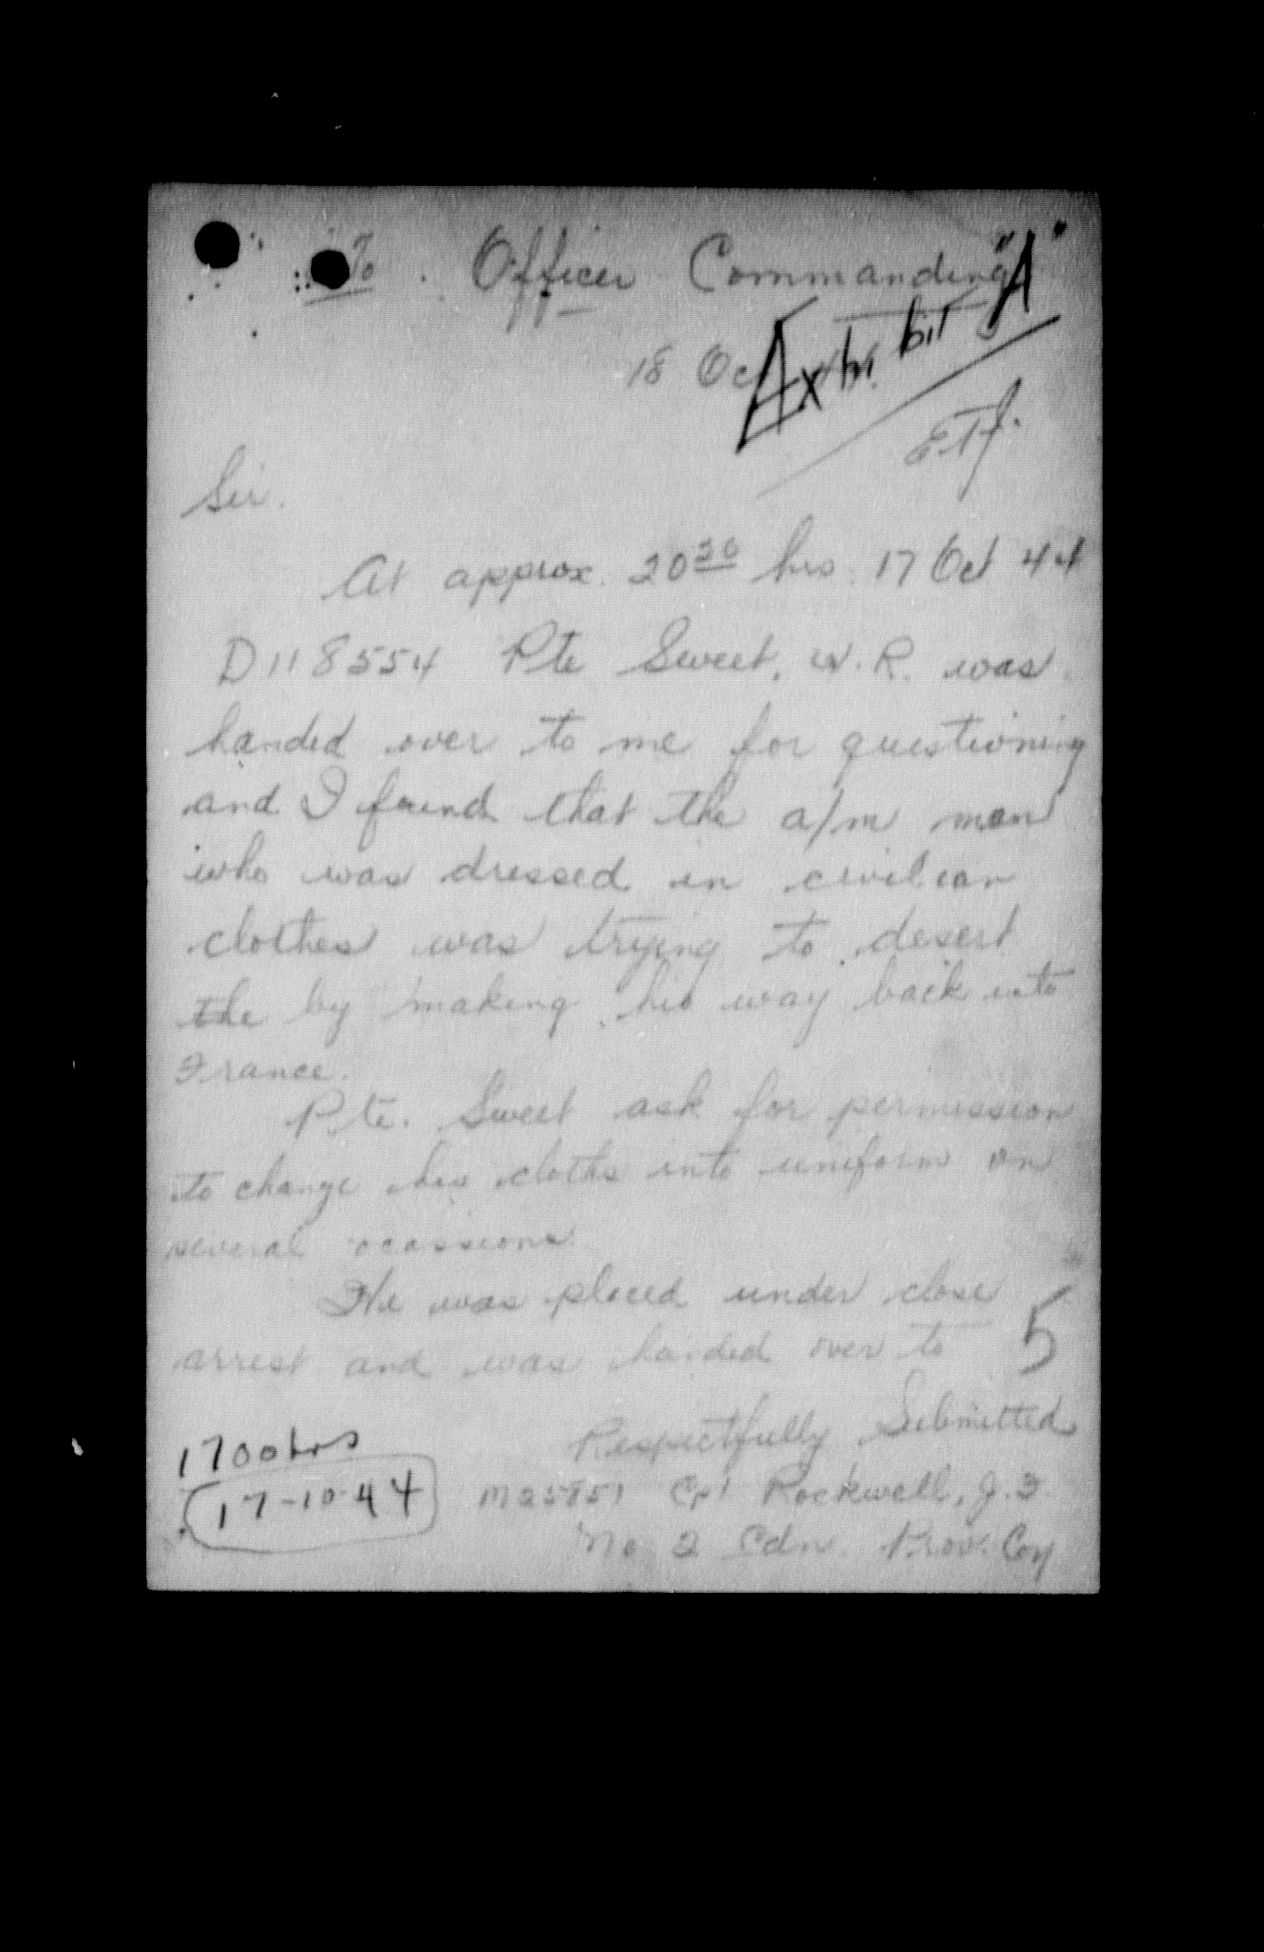 To. Officer Commanding
Exhibit "A"
18 Oct 44.
ETJ.
Sir.
At approx. 20 30 hrs. 17 Oct 44
D118554 Pte Sweet, W. R. was
handed over to me for questioning
and I found that the a/m man
who was dressed in civilian
clothes was trying to desert
the by making his way back into
France.
Pte. Sweet ask for permission
to change his cloths into uniform on
several ocassions
He was placed under close
arrest and was handed over to
5
Respectfully Submitted
1700 hrs
17-10-44
Cpl Rockwell, J.
No 2 Cdn. Prov. Coy